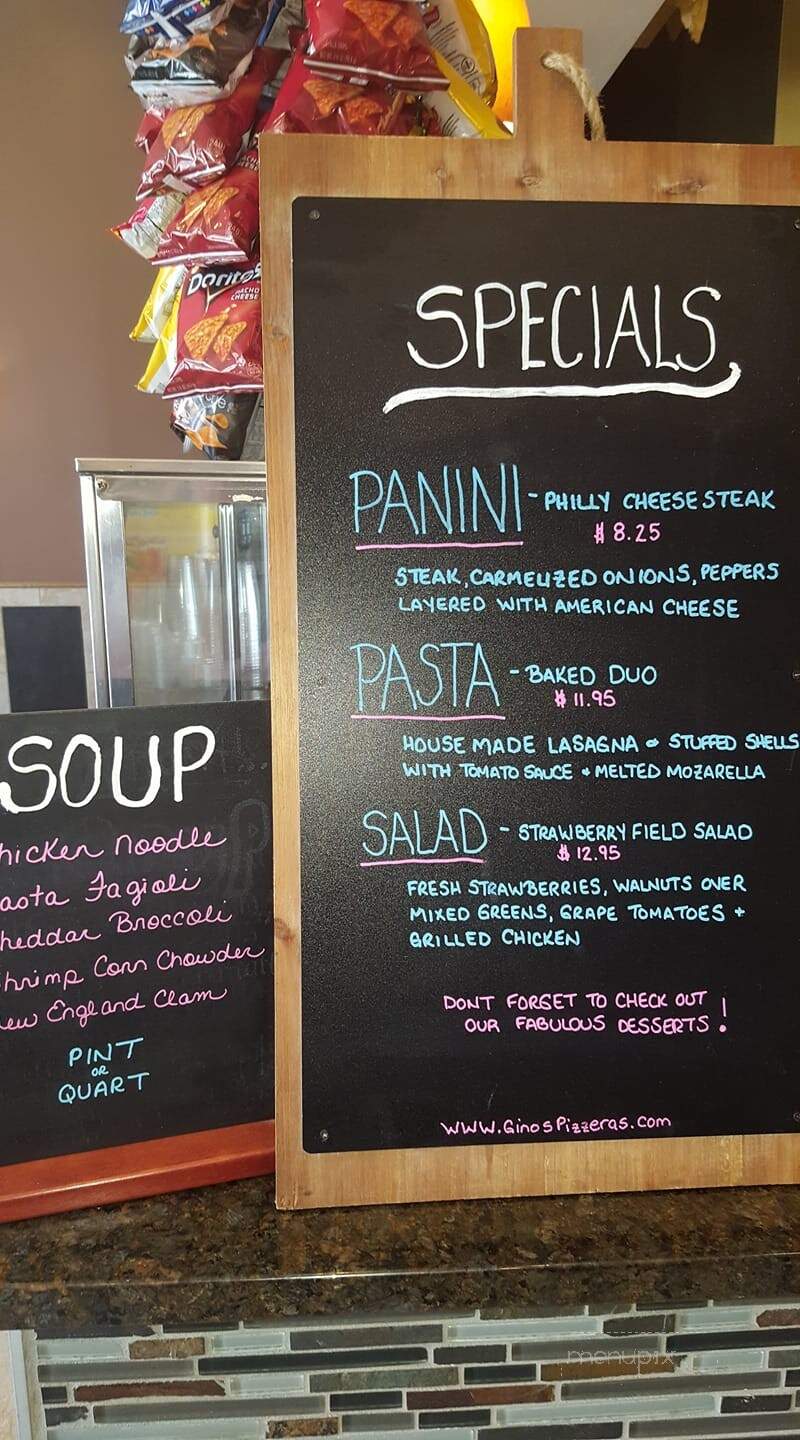 Doritos
NACHO
CHEESE
SPECIALS
PANINI - PHILLY CHEESE STEAK
$ 8.25
STEAK, CARMELIZED ONIONS, PEPPERS
LAYERED WITH AMERICAN CHEESE
PASTA - BAKED DUO
$ 11.95
HOUSE MADE LASAGNA & STUFFED SHELLS
WITH TOMATO SAUCE + MELTED MOZARELLA
SALAD - STRAWBERRY FIELD SALAD
$ 12.95
FRESH STRAWBERRIES, WALNUTS OVER
MIXED GREENS, GRAPE TOMATOES +
GRILLED CHICKEN
DONT FORGET TO CHECK OUT
OUR FABULOUS DESSERTS !
WWW.GinosPizzeras.com
SOUP
hicken noodle
asta Fagioli
heddar Broccoli
hrimp Corn Chowder
ew England Clam
PINT
OR
QUART
menupix